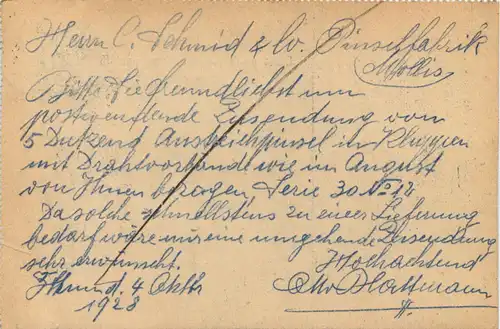 Herrn C. Schmid & Co. Pinselfabrik
Mollis
Bitte Sie freundlichst um
postwendende Zusendung von
5 Dutzend Anstreichpinsel in Kluppen
mit Drahtvorbande wie im August
von Ihnen bezogen Serie 30 No 14
Da solche schnellstens zu einer Lieferung
bedarf wäre mir eine umgehende Zusendung
sehr erwünscht.
Hochachtend
d. 4 Oktbr
Otto
1928